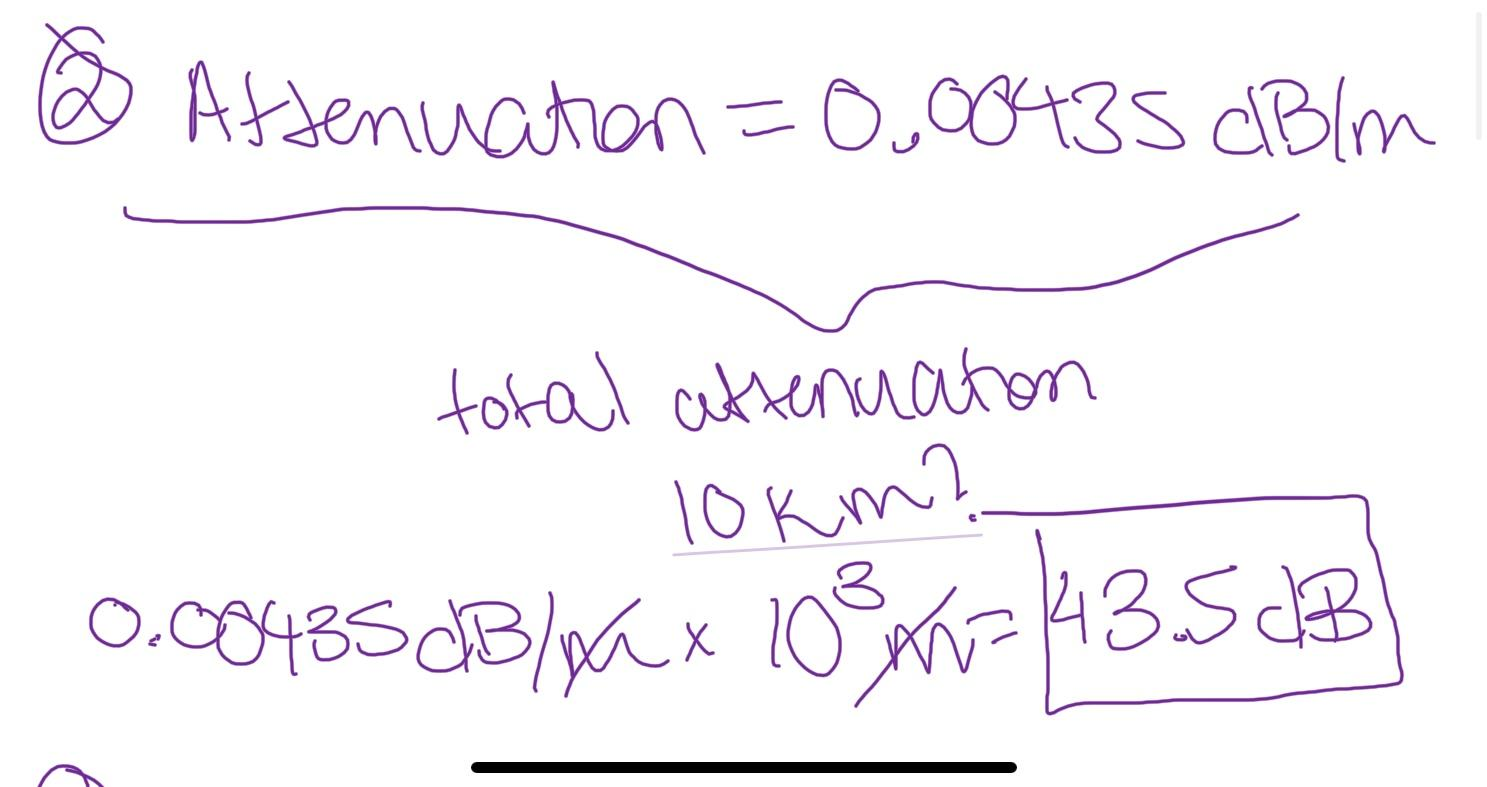 ② Attenuation = 0.00435 dB/m
total attenuation
10 km?
0.00435 dB/m x 10³ m = 43.5 dB